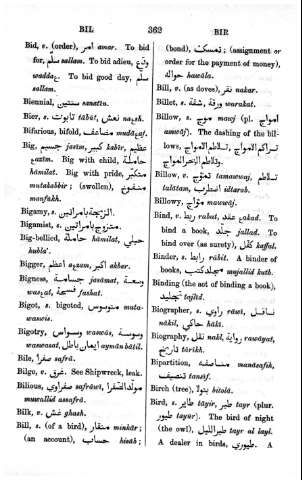 BIL 362 BIR
Bid, v. (order), امر amar. To bid
for, سلّم sallam. To bid adieu, ودّع
waddaع. To bid good day, سلّم
sallam.
Biennial, سنتين sanatīn.
Bier, s. تابوت tābūt, نعش naعsh.
Bifurious, bifold, مضاعف
Big, جسيم jasīm, كبير kabīr, عظيم
عaẓīm. Big with child, حاملة
ḥāmilat. Big with pride, متكبّر
mutakabbir; (swollen), منفوخ
manfūkh.
Bigamy, s.
Bigamist, s.
Big-bellied, حاملة ḥāmilat, حبلى
ḥubla'.
Bigger, اعظم aعẓam, اكبر akbar.
Bigness, جسامة jasāmat, وسعة
wasعat, فسحة fasḥat.
Bigot, s. bigoted,
Bigotry, وسواس waswās, وسوسة
waswasat, ايمان باطل aymān bātil.
Bile, صفرا safrā.
Bilge, v. غرق. See Shipwreck, leak.
Bilious, صفراوي safrāwī,
muwallid assafrā.
Bilk, v. غش ghash.
Bill, s. (of a bird), منقار minkār;
(an account), حساب hisāb;
(bond), تمسك; (assignment or
order for the payment of money),
حوالة hawāla.
Bill, v. (as doves), نقر nakar.
Billet, s. شقة, ورقة warakat.
Billow, s. موج mawj (pl. امواج
amwāj). The dashing of the bil-
lows, تراكم الامواج
وتلاطم
Billow, v. تموّج tamawwaj, تلاطم
talātam, اضطرب idtarab.
Billowy, موّاج mawwāj.
Bind, v. ربط rabat, عقد عakad. To
bind a book, جلّد jallad. To
bind over (as surety), كفل kaffal.
Binder, s. رابط rābit. A binder of
books, مجلد كتب mujallid kutb.
Binding (the act of binding a book),
تجليد tajlīd.
Biographer, s. راوي rāwī, ناقل
nākil, حاكي hākī.
Biography, نقل nakl, رواية rawāyat,
تاريخ tārīkh.
Bipartition, مناصفة munāsafih,
تنصيف tansīf.
Birch (tree), بتولا bitolā.
Bird, s. طاير tāyir, طير tayr (plur.
طيور tayūr). The bird of night
(the owl), طير الليل tayr al layl.
A dealer in birds, طيوري. A